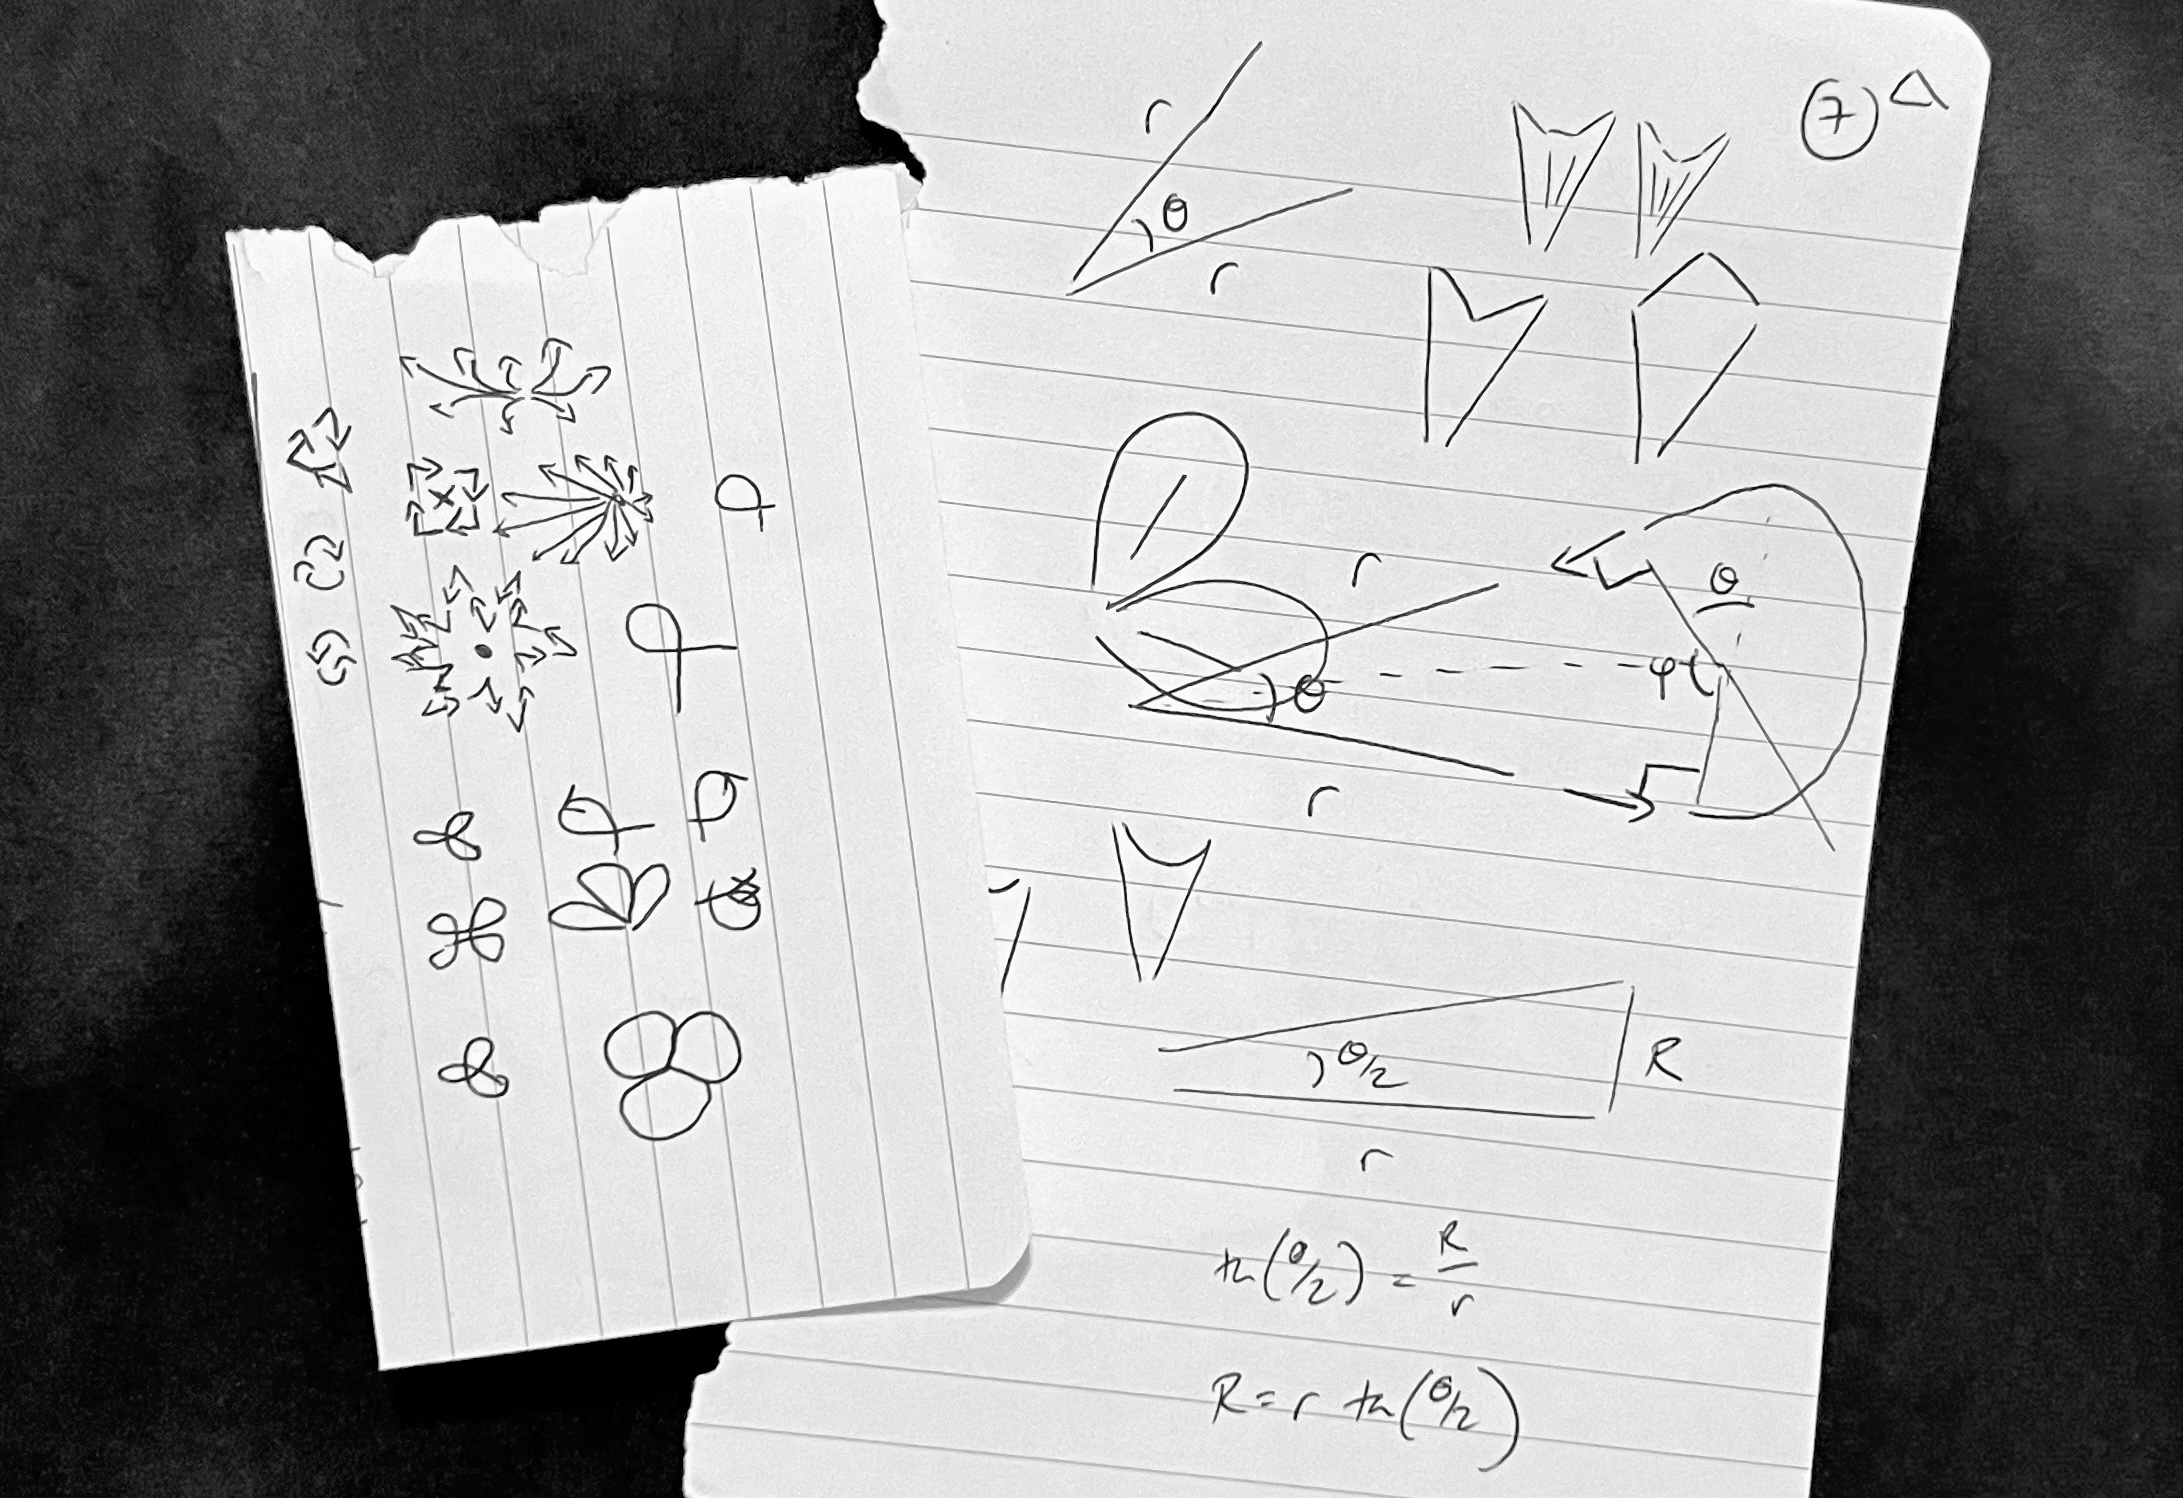 7
r
θ
r
r
θ
φ
θ
r
θ/2
R
r
tn(θ/2) = R/r
R = r tn(θ/2)